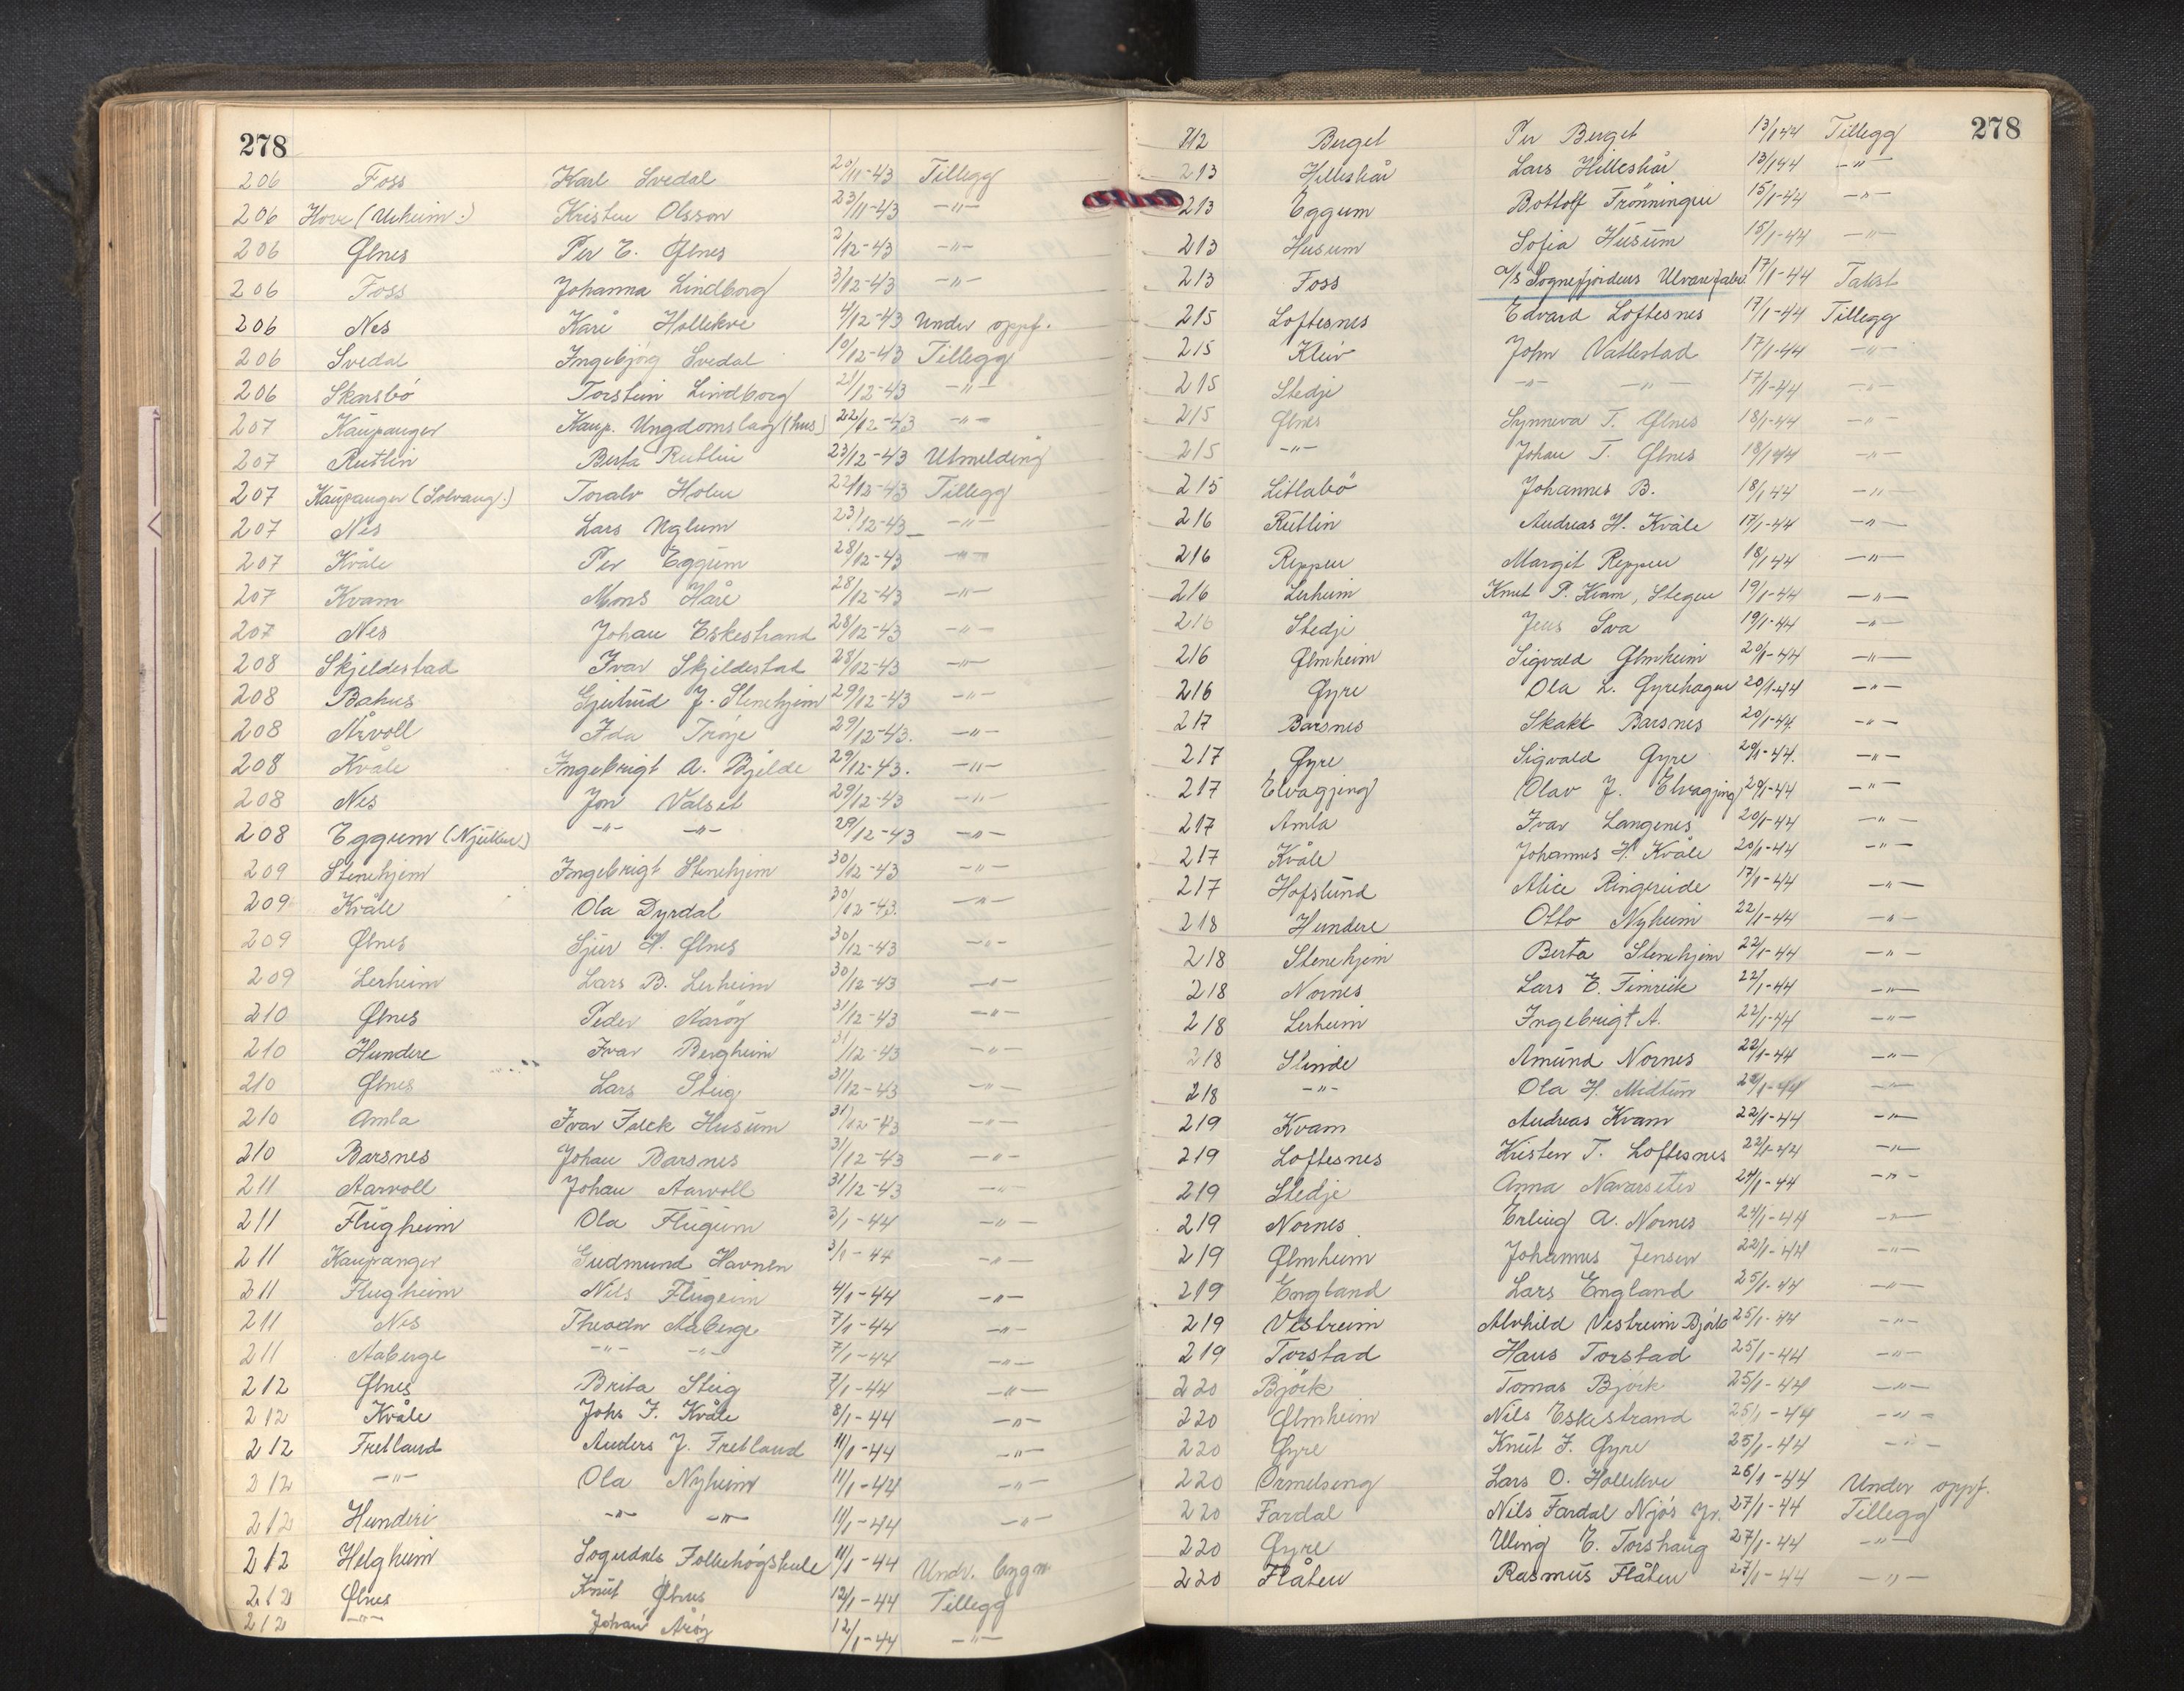 278
206 Foss Karl Svedal 20/11-43 Tillegg
206 Hove (Ureheim.) Kristen Olsson 23/11-43 -"-
206 Ølnes Per E. Ølnes 2/12-43 -"-
206 Foss Johanna Lindborg 3/12-43 -"-
206 Nes Kåre Hollekve 4/12-43 Under oppf.
206 Svedal Ingebjørg Svedal 10/12-43 Tillegg
206 Skarsbö Torstein Lindborg 21/12-43 -"-
207 Kaupanger Kaup. Ungdomslag (hus) 22/12-43 -"-
207 Rutlin Berta Rutlin 23/12-43 Utmelding
207 Kaupanger (Solvang.) Toralv Holen 22/12-43 Tillegg
207 Nes Lars Uglum 23/12-43 -"-
207 Kvåle Per Eggum 28/12-43 -"-
207 Kvam Mons Håre 28/12-43 -"-
207 Nes Johan Eskestrand 28/12-43 -"-
208 Skjeldestad Ivar Skjeldestad 28/12-43 -"-
208 Bahus Gjertrud J. Stenehjem 29/12-43 -"-
208 Årvoll Ida Trøye 29/12-43. -"-
208 Kvåle Ingebrigt A. Bjelde 29/12-43. -"-
208 Nes Jon Valset 29/12-43 -"-
208 Eggum (Njuken) -"- -"- 29/12-43 -"-
209 Stenehjem Ingebrigt Stenehjem 30/12-43 -"-
209 Kvåle Ola Dyrdal 30/12-43. -"-
209 Ølnes Sjur H. Ølnes 30/12-43 -"-
209 Lerheim Lars B. Lerheim 30/12-43 -"-
210 Ølnes Peder Aarøy 31/12-43 -"-
210 Hundere Ivar Bergheim 31/12-43 -"-
210 Ølnes Lars Steig 31/12-43 -"-
210 Amla Ivar Falck Husum 31/12-43 -"-
210 Barsnes Johan Barsnes 31/12-43 -"-
211 Aarvoll Johan Aarvoll 31/12-43 -"-
211 Flugheim Ola Flugum 3/1-44 -"-
211 Kaupanger Gudmund Havnen 3/1-44 -"-
211 Flugheim Nils Flugeim 4/1-44 -"-
211 Nes Theodor Aaberge 7/1-44 -"-
211 Aaberge -"- -"- 7/1-44 -"-
212 Ølnes Brita Steig 7/1-44 -"-
212 Kvåle Johs I. Kvåle 8/1-44 -"-
212 Fretland Anders J. Fretland 11/1-44 -"-
212 -"- Ola Nyheim 11/1-44 -"-
212 Hunderi -"- -"- 11/1-44 -"-
212 Helgheim Sogndals Folkehøgskule 11/1-44 Undr. bygn
212 Ølnes Knut Ølnes 12/1-44 Tillegg
212 -"- Johan Årøy 12/1-44 -"-
278
212 Berget Per Berget 13/1 44 Tillegg
213 Hilleshår Lars Hilleshår 13/1 44 -"-
213 Eggum Bottolf Frønningen 15/1-44 -"-
213 Husum Sofia Husum 15/1-44 -"-
213 Foss a/s Sognefjordens Ulvarefabr. 17/1-44 Takst
215 Loftesnes Edvard Loftesnes 17/1-44 Tillegg
215 Kleiv John Vatlestad 17/1-44 -"-
215 Stedje -"- -"- 17/1-44 -"-
215 Ølnes Synneva T. Ølnes 18/1-44 -"-
215 -"- Johan T. Ølnes 18/1 44 -"-
215 Litlabö Johannes B. 18/1 44 -"-
216 Rutlin Andreas H. Kvåle 17/1-44 -"-
216 Reppen Margit Reppen 18/1 44 -"-
216 Lerheim Knut P. Kvam, Stegen 19/1-44 -"-
216 Stedje Jens Sva 19/1-44 -"-
216 Ølmheim Sigvald Ølmheim 20/1-44 -"-
216 Øyre Ola L. Øyrehagen 20/1-44 -"-
217 Barsnes Skakt Barsnes 20/1-44. -"-
217 Øyre Sigvald Øyre 20/1-44. -"-
217 Elvagjing Olav J. Elvagjing 20/1-44 -"-
217 Amla Ivar Langenes 20/1-44 -"-
217 Kvåle Johannes H. Kvåle 20/1-44 -"-
217 Hofslund Alice Ringereide 17/1-44 -"-
218 Hundere Otto Nyheim 22/1-44 -"-
218 Stenehjem Berta Stenehjem 22/1-44 -"-
218 Nornes Lars E. Timreik 22/1-44 -"-
218 Lerheim Ingebrigt A. 22/1-44 -"-
218 Slinde Amund Nornes 22/1-44 -"-
218 -"- Ola H. Midtun 22/1-44 -"-
219 Kvam Andreas Kvam 22/1-44 -"-
219 Loftesnes Kristen T. Loftesnes 22/1-44 -"-
219 Stedje Anna Navarseter 24/1-44 -"-
219 Nornes Erling A. Nornes 24/1-44 -"-
219 Ølmheim Johannes Jensen 22/1-44 -"-
219 England Lars England 25/1-44 -"-
219 Vestreim Alvhild Vestreim Björk 25/1-44 -"-
219 Torstad Hans Torstad 25/1-44 -"-
220 Björk Tomas Björk 25/1-44 -"-
220 Ølmheim Nils Eskestrand 25/1-44 -"-
220 Øyre Knut I. Øyre 25/1-44 -"-
220 Ormelseng Lars O. Hollekve 26/1-44 Under oppf.
220 Fardal Nils Fardal Njøs Jr. 27/1-44 Tillegg
220 Øyre Elling E. Torshaug 27/1-44 -"-
220 Flåten Rasmus Flåten 27/1-44 -"-